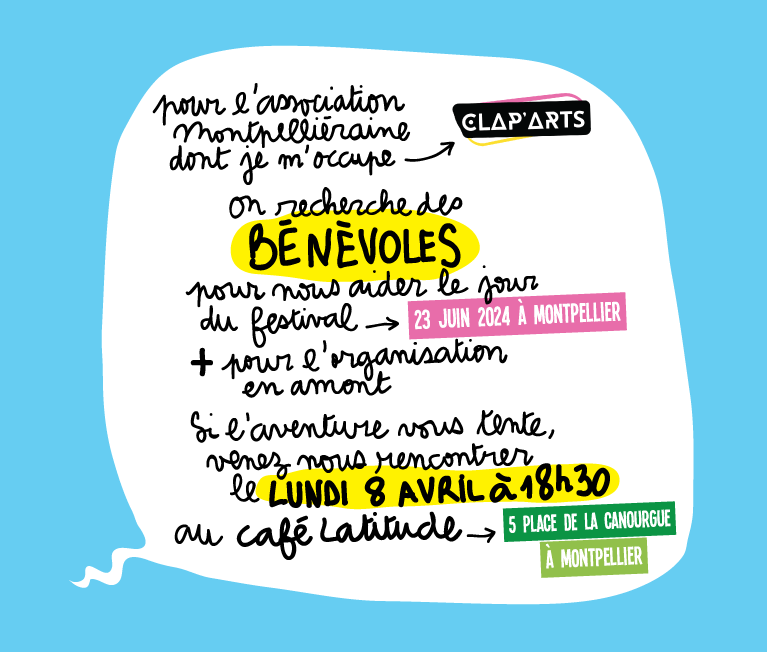 pour l'association
Montpelliéraine
dont je m'occupe → CLAP'ARTS
on recherche des
BÉNÈVOLES
pour nous aider le jour
du festival → 23 JUIN 2024 À MONTPELLIER
+ pour l'organisation
en amont
Si l'aventure vous tente,
venez nous rencontrer
le LUNDI 8 AVRIL à 18h30
au café Latitude → 5 PLACE DE LA CANOURGUE
À MONTPELLIER